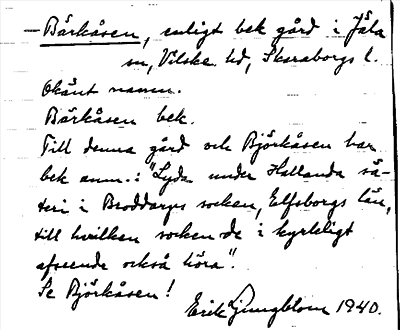 – Bärkåsen, enligt bek gård i Jäla
sn, Vilske hd, Skaraborgs l.
Okänt namn.
Bärkåsen bek.
Till denna gård och Björkåsen har
bek anm.: "Lyda under Hallanda sä-
teri i Broddarps socken, Elfsborgs län,
till hvilken socken de i kyrkligt
afseende också höra".
Se Björkåsen!
Erik Ljungblom 1940.